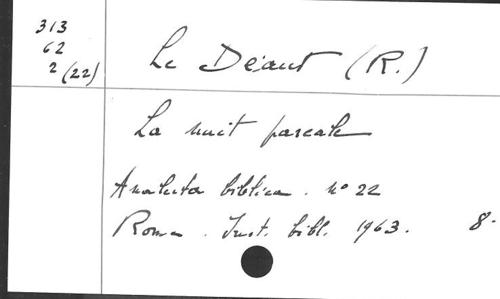 313
62
2 (22)
Le Déaut (R.)
La nuit pascale
Analecta biblica. nº 22
Roma. Inst. bibl. 1963. 8.